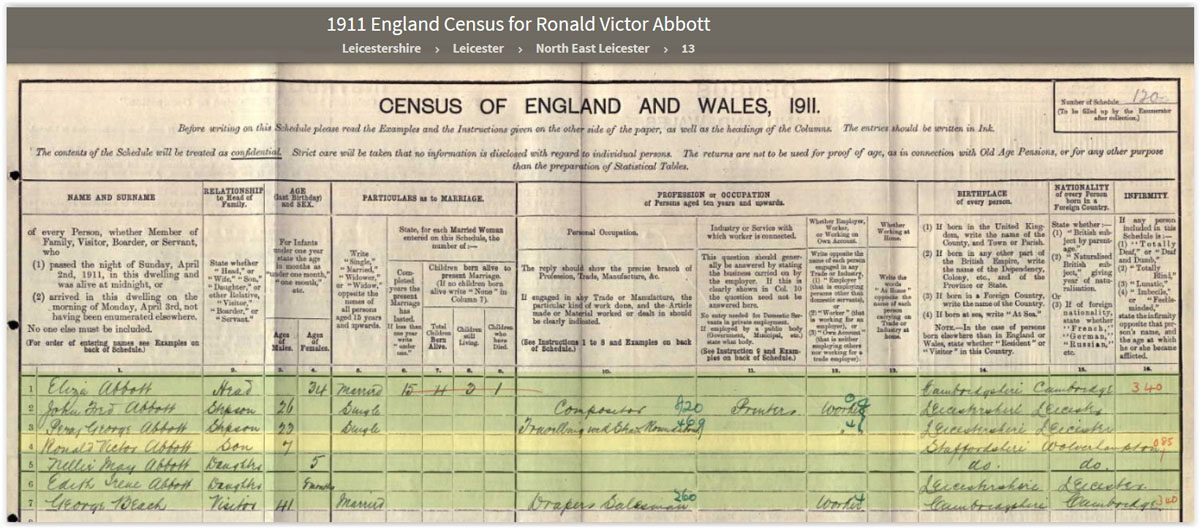 1911 England Census for Ronald Victor Abbott
Leicestershire > Leicester > North East Leicester > 13
CENSUS OF ENGLAND AND WALES, 1911.
Number of Schedule 120
(To be filled up by the Enumerator after collection.)
Before writing on this Schedule please read the Examples and the Instructions given on the other side of the paper, as well as the headings of the Columns. The entries should be written in Ink.
The contents of the Schedule will be treated as confidential. Strict care will be taken that no information is disclosed with regard to individual persons. The returns are not to be used for proof of age, as in connection with Old Age Pensions, or for any other purpose
than the preparation of Statistical Tables.
NAME AND SURNAME
of every Person, whether Member of
Family, Visitor, Boarder, or Servant,
who
(1) passed the night of Sunday, April
2nd, 1911, in this dwelling and
was alive at midnight, or
(2) arrived in this dwelling on the
morning of Monday, April 3rd, not
having been enumerated elsewhere.
No one else must be included.
(For order of entering names see Examples on
back of Schedule.)
RELATIONSHIP
to Head of
Family.
State whether
"Head," or
"Wife," "Son,"
"Daughter," or
other Relative,
"Visitor,"
"Boarder," or
"Servant."
AGE
(last Birthday)
and SEX.
For Infants
under one year
state the age
in months as
"under one month,"
"one month,"
etc.
Ages of Males.
Ages of Females.
PARTICULARS as to MARRIAGE.
Write
"Single,"
"Married,"
"Widower,"
or "Widow,"
opposite the
names of
all persons
aged 15 years
and upwards.
State, for each Married Woman
entered on this Schedule, the
number of:—
Completed years the present Marriage has lasted.
If less than one year write "under one."
Children born alive to
present Marriage.
(If no children born
alive write "None" in
Column 7).
Total Children Born Alive.
Children still Living.
Children who have Died.
PROFESSION or OCCUPATION
of Persons aged ten years and upwards.
Personal Occupation.
The reply should show the precise branch of
Profession, Trade, Manufacture, &c.
If engaged in any Trade or Manufacture, the
particular kind of work done, and the Article
made or Material worked or dealt in should
be clearly indicated.
(See Instructions 1 to 8 and Examples on back
of Schedule.)
Industry or Service
with which worker is connected.
This question should generally
be answered by stating
the business carried on by
the employer. If this is
clearly shown in Col. 10
the question need not be
answered here.
No entry needed for Domestic Servants
in private employment.
If employed by a public body
(Government, Municipal, etc.)
state what body.
(See Instruction 9 and Examples
on back of Schedule.)
Whether Employer,
Worker,
or Working on
Own Account.
Write opposite the
name of each person
engaged in any
Trade or Industry,
(1) "Employer"
(that is employing
persons other than
domestic servants),
or
(2) "Worker" (that
is working for an
employer), or
(3) "Own Account"
(that is neither
employing others
nor working for a
trade employer).
Whether
Working at
Home.
Write the
words
"At Home"
opposite the
name of each
person
carrying on
Trade or
Industry at
home.
BIRTHPLACE
of every person.
(1) If born in the United Kingdom,
write the name of the
County, and Town or Parish.
(2) If born in any other part of
the British Empire, write
the name of the Dependency,
Colony, etc., and of the
Province or State.
(3) If born in a Foreign Country,
write the name of the Country.
(4) If born at sea, write "At Sea."
NOTE.—In the case of persons
born elsewhere than in England or
Wales, state whether "Resident" or
"Visitor" in this Country.
NATIONALITY
of every Person
born in a
Foreign Country.
State whether:—
(1) "British subject
by parentage,"
(2) "Naturalised
British subject,"
giving
year of naturalisation.
Or
(3) If of foreign
nationality,
state whether
"French,"
"German,"
"Russian,"
etc.
INFIRMITY.
If any person
included in this
Schedule is:—
(1) "Totally
Deaf," or "Deaf
and Dumb,"
(2) "Totally
Blind,"
(3) "Lunatic,"
(4) "Imbecile,"
or "Feeble-minded,"
state the infirmity
opposite that person's
name, and
the age at which
he or she became
afflicted.
1. 2. 3. 4. 5. 6. 7. 8. 9. 10. 11. 12. 13. 14. 15. 16.
1 Eliza Abbott Head 34 Married 15 4 3 1 Cambridgshire Cambridge 340
2 John Fred Abbott Stepson 26 Single Compositor 820 Printers Worker Leicestershire Leicester
3 Percy George Abbott Stepson 23 Single Travelling 469 Leicestershire Leicester
4 Ronald Victor Abbott Son 7 Staffordshire Wolverhampton 085
5 Nellie May Abbott Daughter 5 do. do.
6 Edith Irene Abbott Daughter 8 months Leicestershire Leicester
7 George Beach Visitor 41 Married Drapers Salesman 260 Worker Cambridgshire Cambridge 340